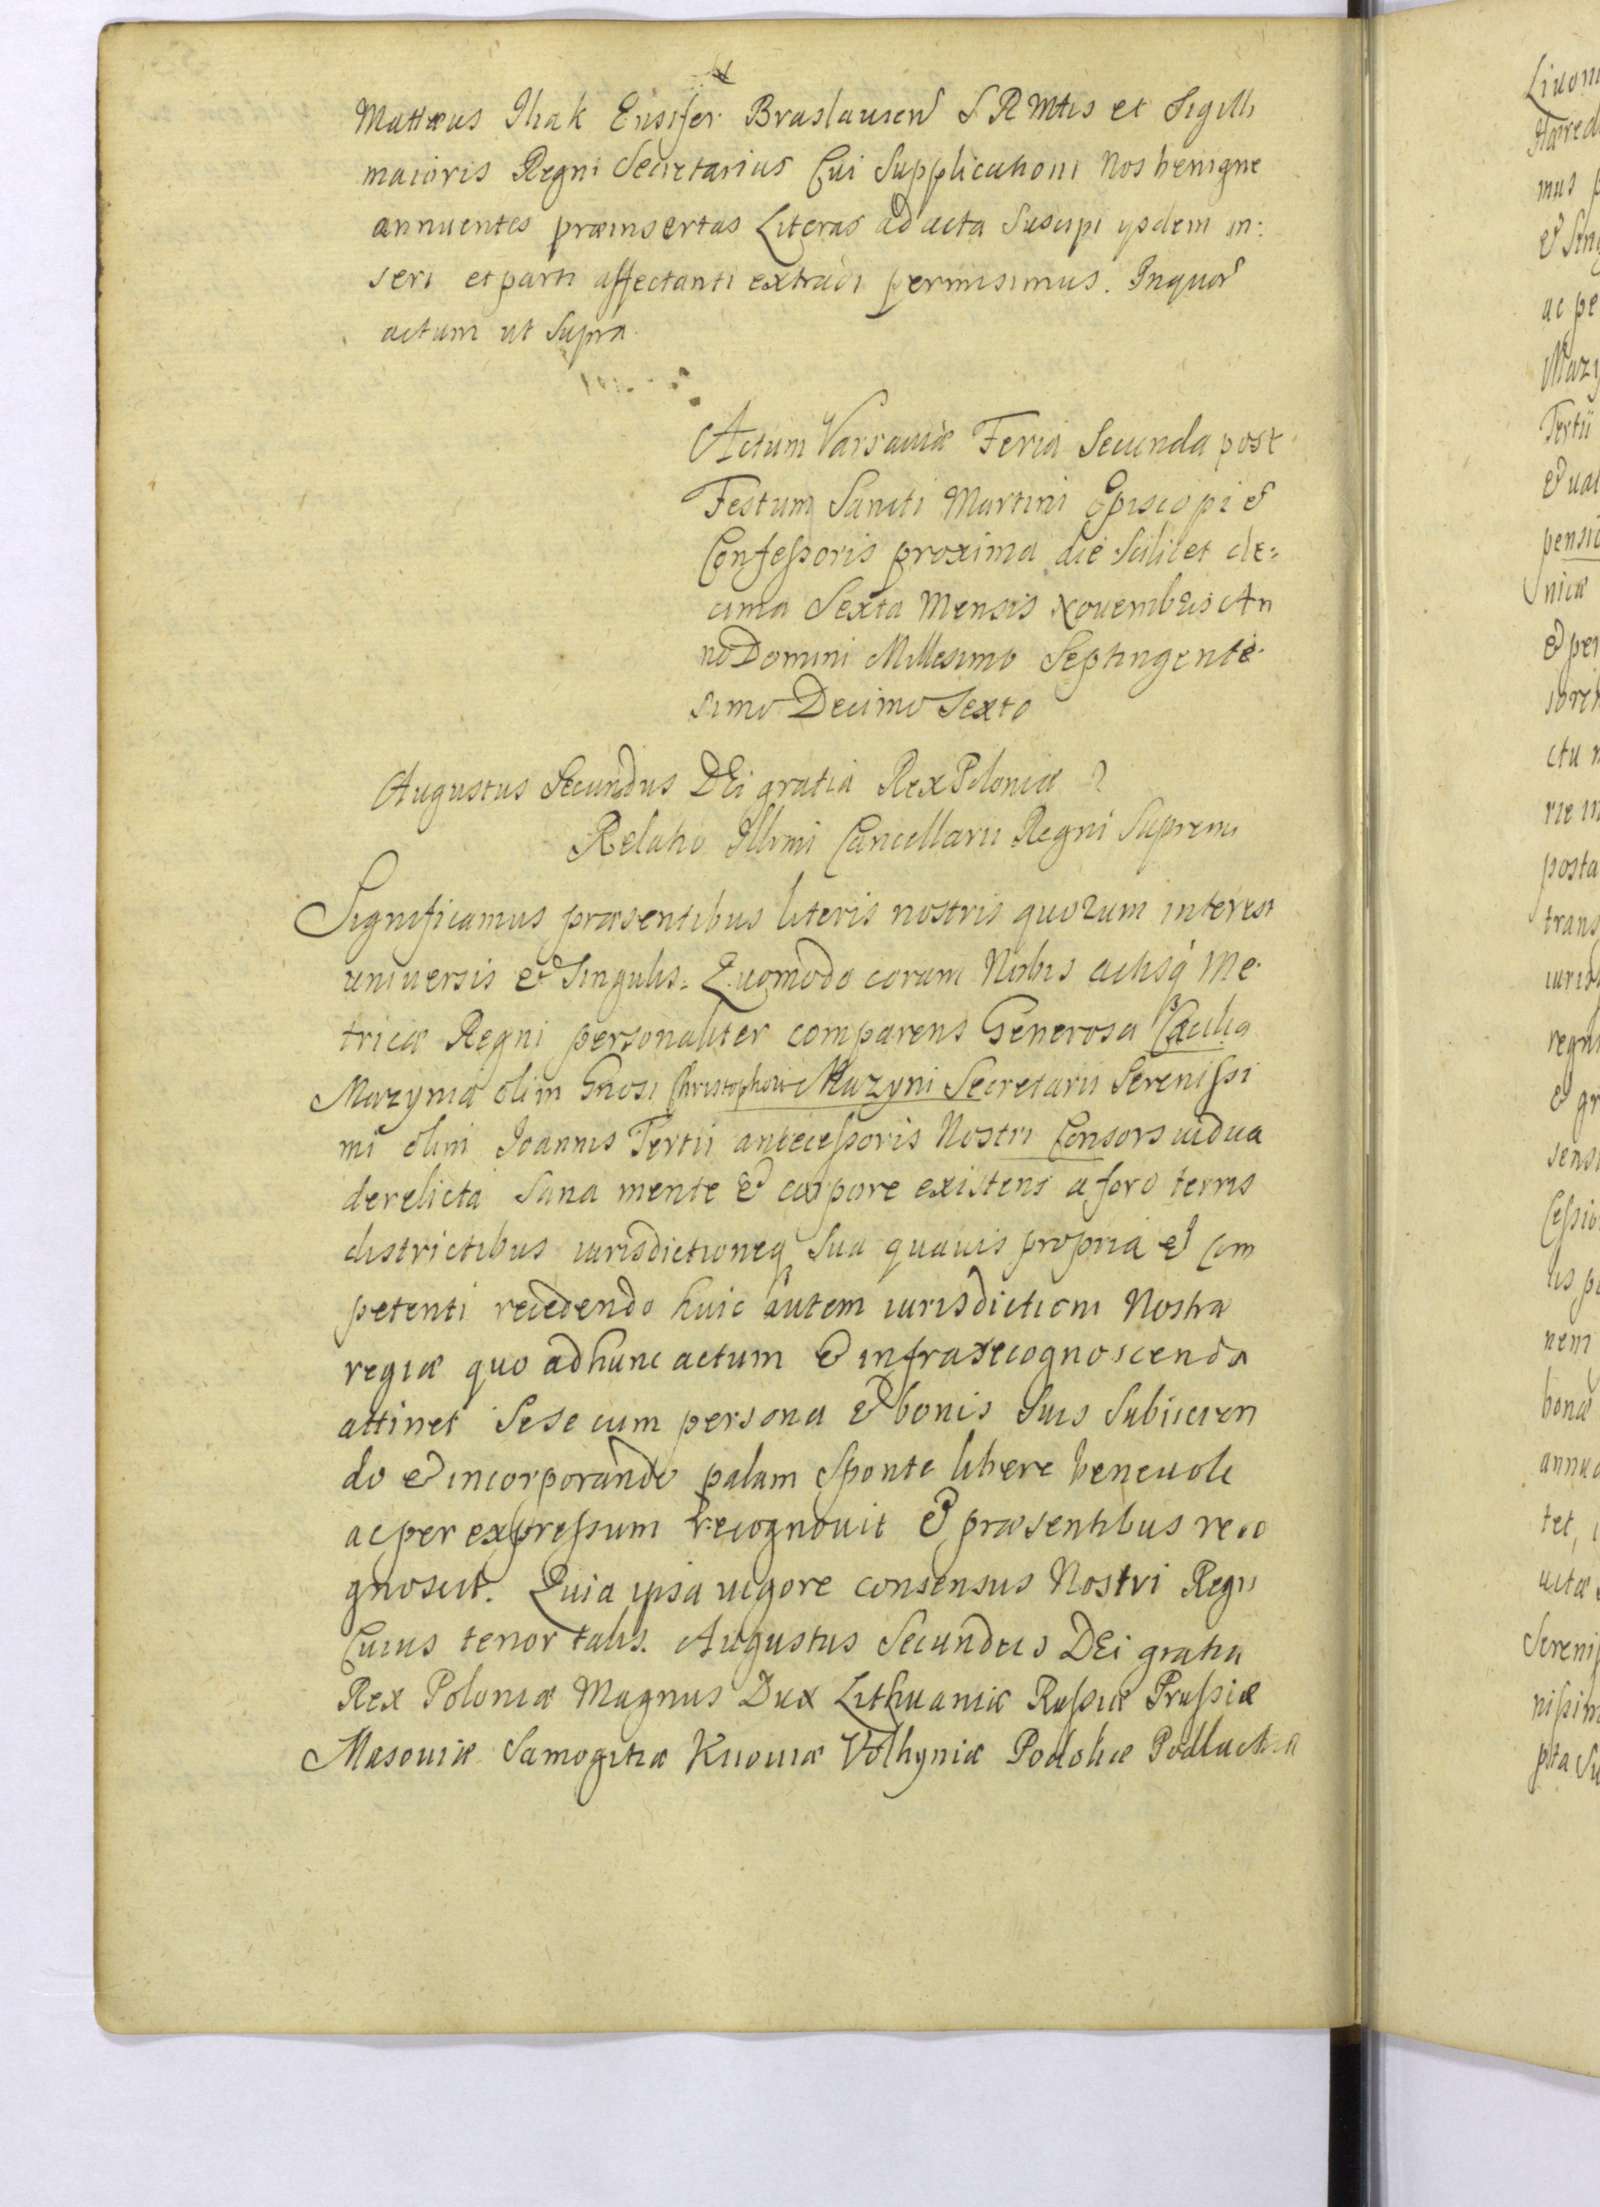 Matthæus Iliak Ensifer Braslauien S R Mtis et Sigilli
maioris Regni Secretarius Cui Supplicationi Nos benigne
annuentes præinsertas Literas ad acta Suscipi ysdem in:
seri et parti affectanti extradi permisimus. Inquor
actum ut Supra.
Actum Varsaviæ Feria Secunda post
Festum Sancti Martini Episcopi &
Confessoris proxima die Scilicet de=
cima Sexta Mensis Novembris An
no Domini Millesimo Septingente
simo Decimo Sexto
Augustus Secundus DEi gratia Rex Poloniæ
Relatio Illmi Cancellarii Regni Supremi
Significamus præsentibus literis nostris quorum interest
universis & Singulis. Quomodo coram Nobis actisq Me
tricæ Regni personaliter comparens Generosa Cæcilia
Mazynia olim Gnosi Christophori Mazyni Secretarii Serenissi
mi olim Joannis Tertii antecessoris Nostri Consors vidua
derelicta Sana mente & corpore existens a foro terris
districtibus iurisdictioneq Sua quavis propria & com
petenti recedendo huic autem iurisdictioni Nostræ
regiæ quo ad hunc actum & infra recognoscenda
attinet Sese cum persona & bonis Suis Subiicien
do & incorporando palam Sponte libere benevole
ac per expressum recognovit & præsentibus reco
gnoscit. Quia ipsa vigore consensus Nostri Regii
Cuius tenor talis. Augustus Secundus DEi gratia
Rex Poloniæ Magnus Dux Lithuaniæ Russiæ Prussiæ
Masoviæ Samogitiæ Kiioviæ Volhyniæ Podoliæ Podlachiæ